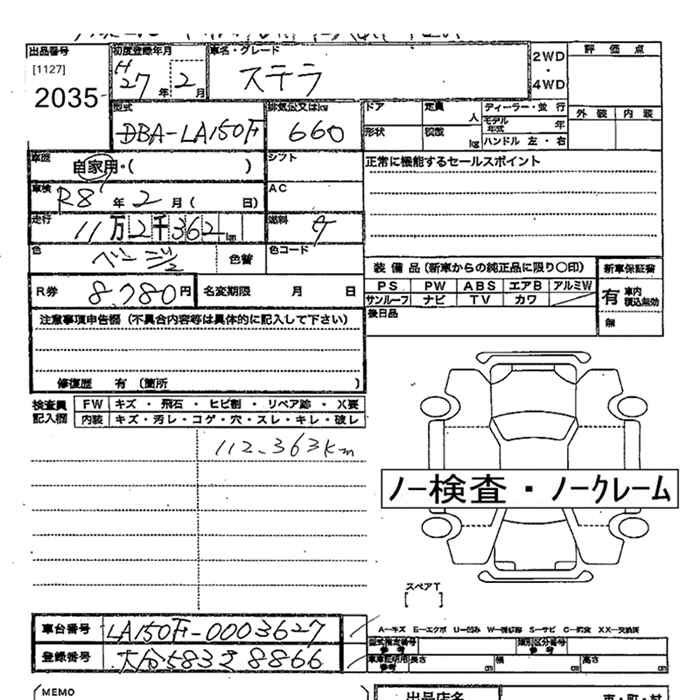 出品番号 初度登録年月 車名・グレード 評価点
[1127] H27年2月 ステラ 2WD・4WD
2035 外装 内装
型式 排気公又はkg ドア 定員 人 ディーラー・並行
DBA-LA150F 660 形状 積酸 kg モデル年式 年
ハンドル 左・右
車歴 自家用・( ) シフト 正常に機能するセールスポイント
車検 R8年2月( 日) AC
走行 11万2千362km 燃料 ガ
色 色替 色コード
装備品(新車からの純正品に限り○印) 新車保証書
R券 8,780円 名変期限 月 日 PS PW ABS エアB アルミW 有 車内 積込無効
サンルーフ ナビ TV カワ 無
注意事項申告欄(不具合内容等は具体的に記入して下さい) 後日品
修復歴 有(箇所 )
検査員記入欄 FW キズ・飛石・ヒビ割・リペア跡・X要
内装 キズ・汚レ・コゲ・穴・スレ・キレ・破レ
112.363km
ノー検査・ノークレーム
スペアT
[ ]
車台番号 LA150F-0003627 A-キズ E-エクボ U-凹み W-補修跡 S-サビ C-腐食 XX-交換済
型式指定番号 参考 類別区分番号 参考
登録番号 大分583き8866 車庫証明用 参考 長さ cm 幅 cm 高さ cm
MEMO 出品店名 市・町・村